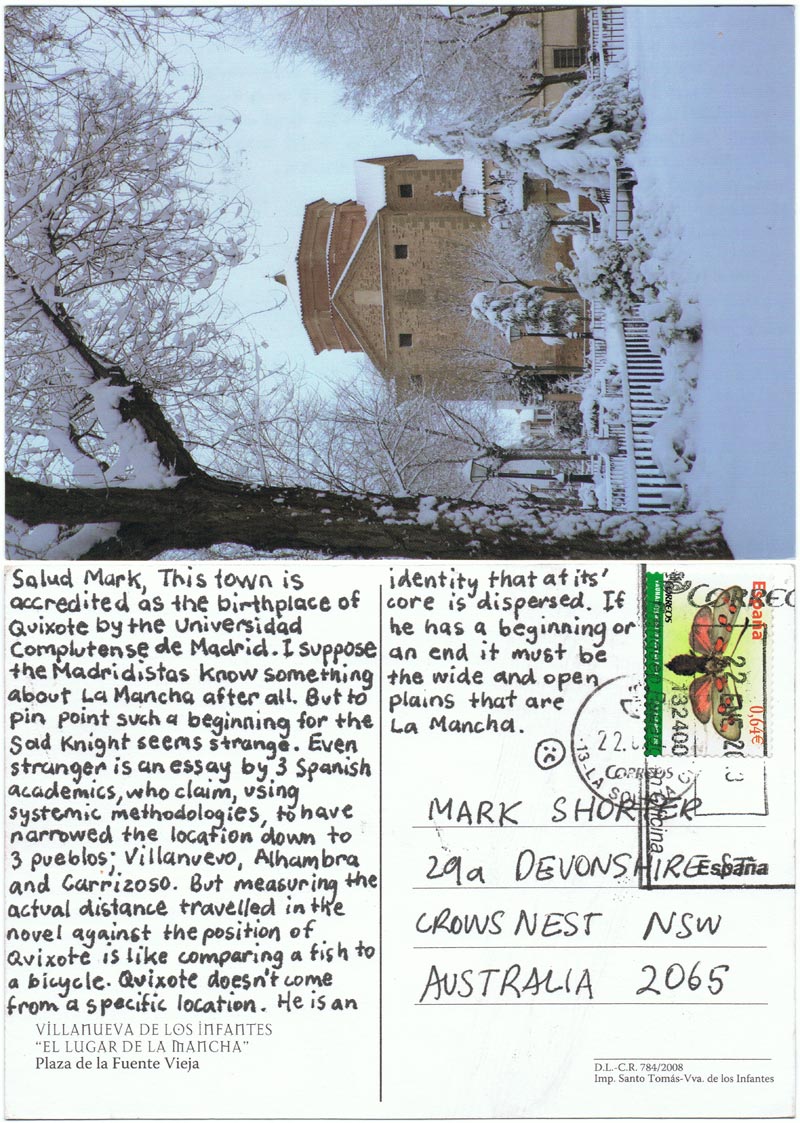 Salud Mark, This town is
accredited as the birthplace of
Quixote by the Universidad
Complutense de Madrid. I suppose
the Madridistas know something
about La Mancha after all. But to
pin point such a beginning for the
Sad Knight seems strange. Even
stranger is an essay by 3 Spanish
academics, who claim, using
systemic methodologies, to have
narrowed the location down to
3 pueblos; Villanuevo, Alhambra
and Carrizoso. But measuring the
actual distance travelled in the
novel against the position of
Quixote is like comparing a fish to
a bicycle. Quixote doesn't come
from a specific location. He is an
identity that at its'
core is dispersed. If
he has a beginning or
an end it must be
the wide and open
plains that are
La Mancha.
VILLANUEVA DE LOS INFANTES
"EL LUGAR DE LA MANCHA"
Plaza de la Fuente Vieja
España
0,64€
CORREOS
CORREOS
22
13-LA
22 ENE
132400
oficina
España
MARK SHORTER
29a DEVONSHIRE ST
CROWS NEST NSW
AUSTRALIA 2065
D.L.-C.R. 784/2008
Imp. Santo Tomás-Vva. de los Infantes